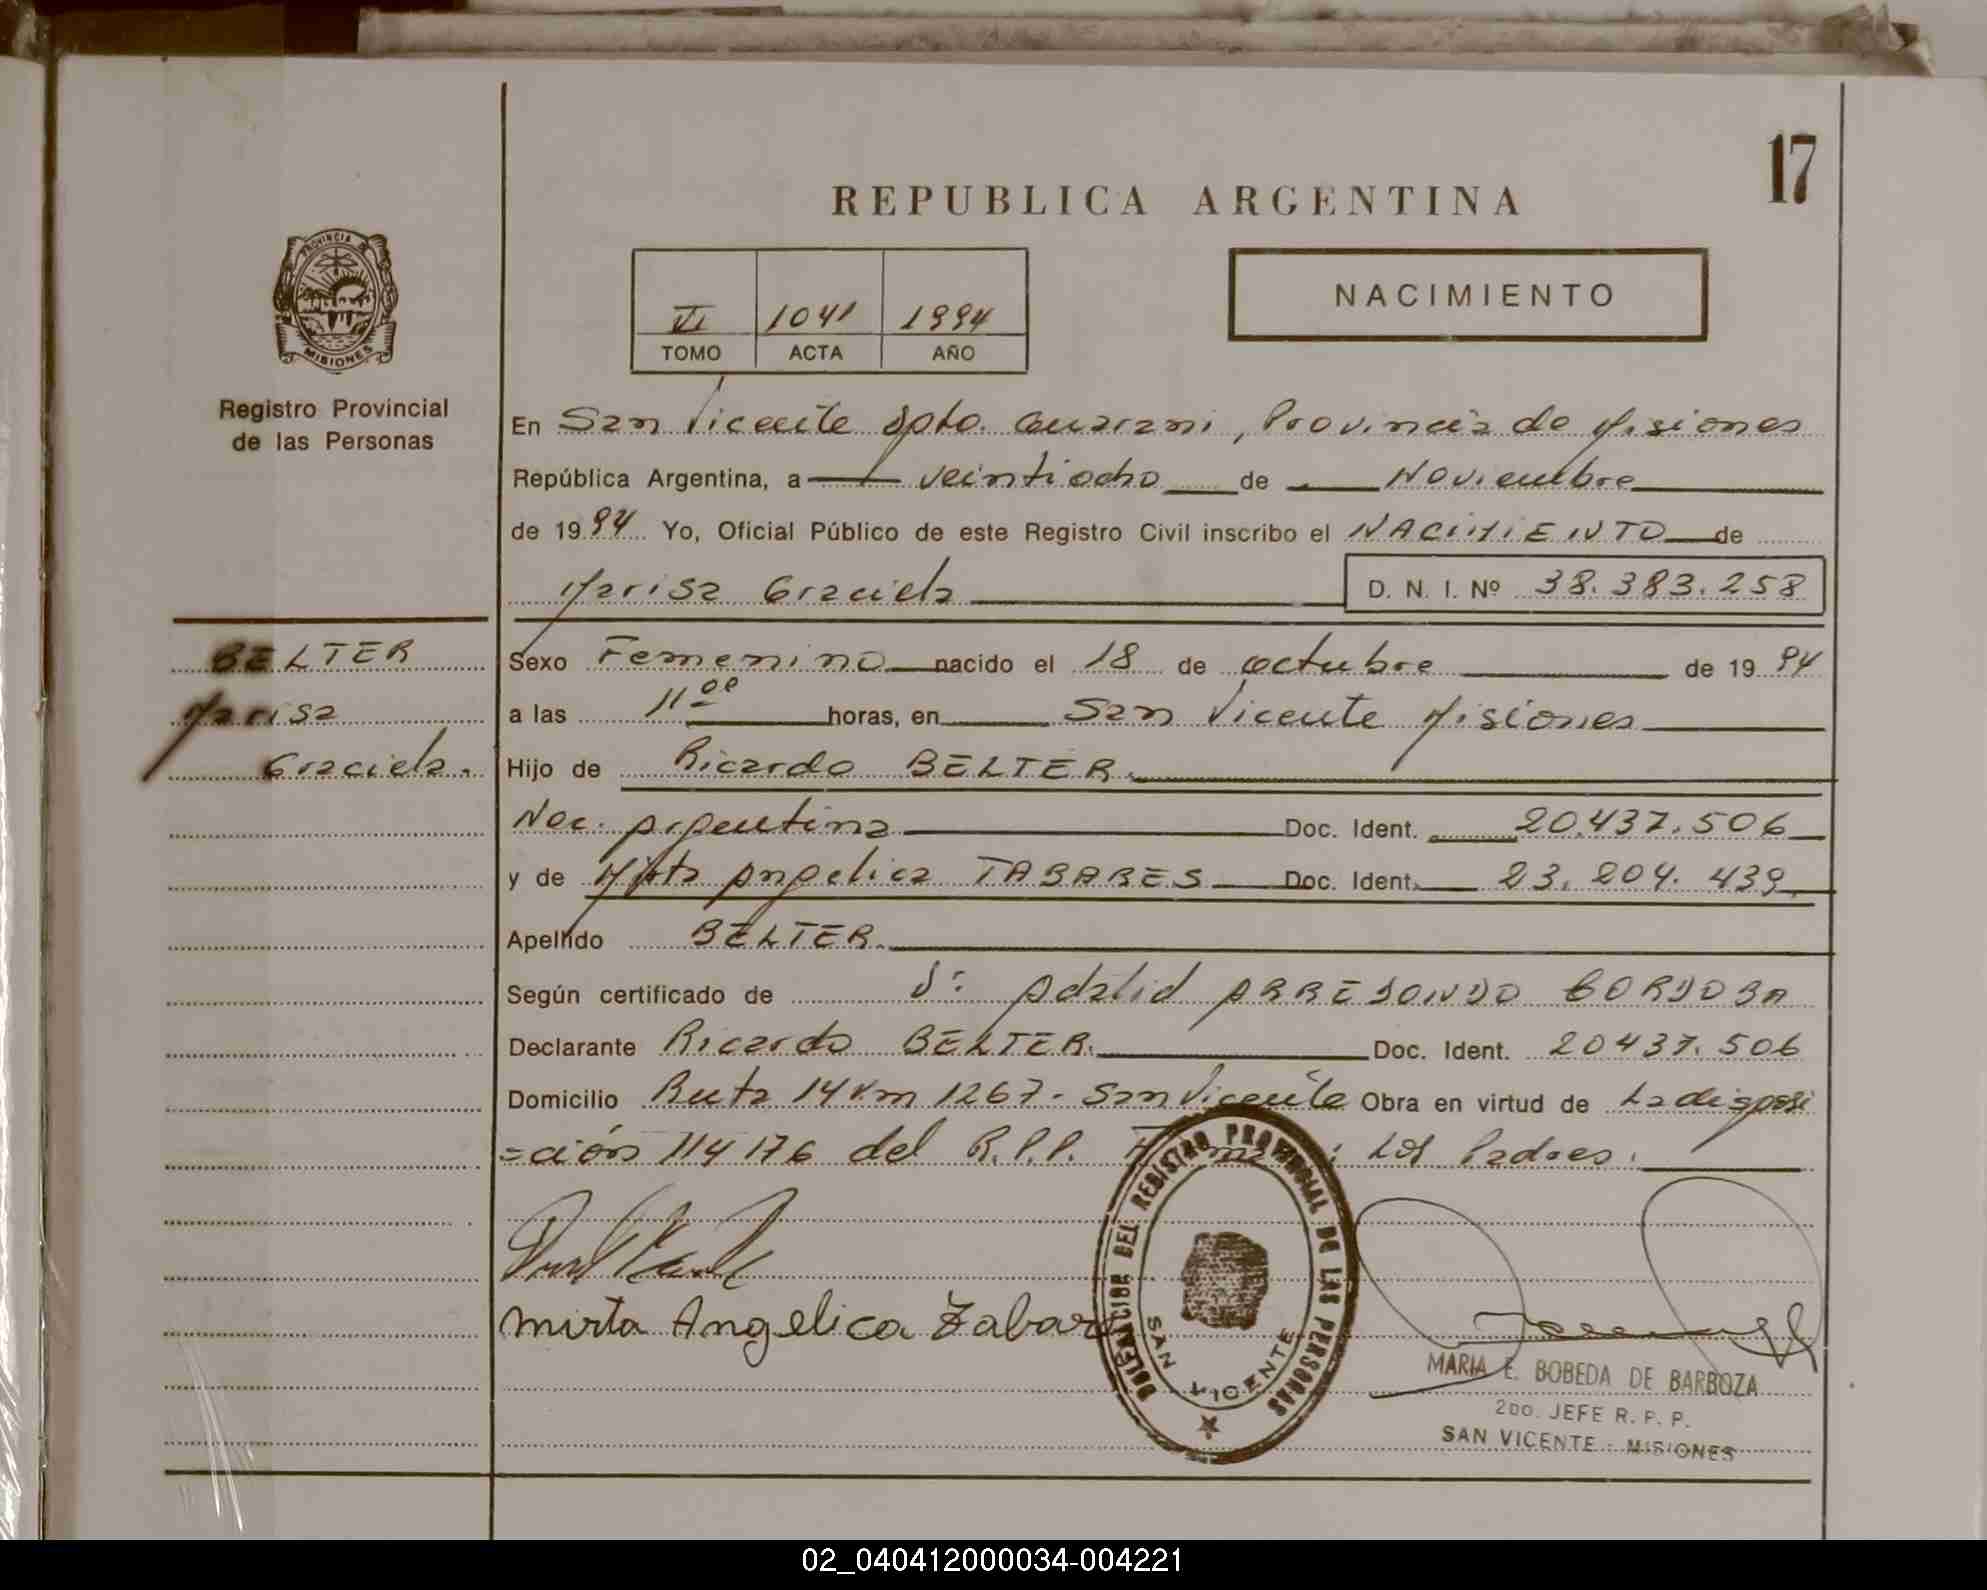 17
REPUBLICA ARGENTINA
PROVINCIA DE
MISIONES
VI 1041 1994
TOMO ACTA AÑO
NACIMIENTO
Registro Provincial
de las Personas
En San Vicente Dpto. Guarani, Provincia de Misiones
República Argentina, a veintiocho de Noviembre
de 1994 Yo, Oficial Público de este Registro Civil inscribo el NACIMIENTO de
Marisa Graciela D. N. I. Nº 38.383.258
BELTER
Marisa
Graciela.
Sexo Femenino nacido el 18 de octubre de 1994
a las 11 00 horas, en San Vicente Misiones
Hijo de Ricardo BELTER
Nac. Argentina Doc. Ident. 20.437.506
y de Mirta Angelica TABARES Doc. Ident. 23.204.439
Apellido BELTER
Según certificado de Dr. Adalid ARREDONDO CORDOBA
Declarante Ricardo BELTER. Doc. Ident. 20437.506
Domicilio Ruta 14 Km 1267. San Vicente Obra en virtud de La disposi
=ción 114176 del R.P.P. : Los Padres.
Mirta Angelica Tabares
DELEGACION DEL REGISTRO PROVINCIAL DE LAS PERSONAS
SAN VICENTE
MARIA E. BOBEDA DE BARBOZA
2DO. JEFE R. P. P.
SAN VICENTE - MISIONES
02_040412000034-004221